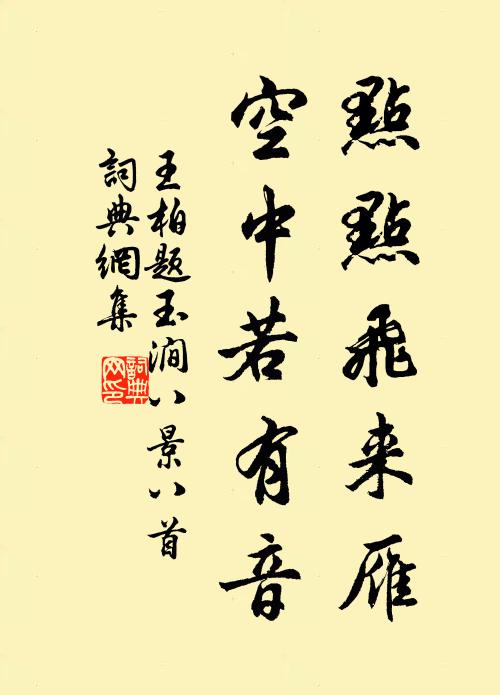 點點飛来雁
空中若有音
王柏題玉澗八景八首
詞典網集
詞典網印